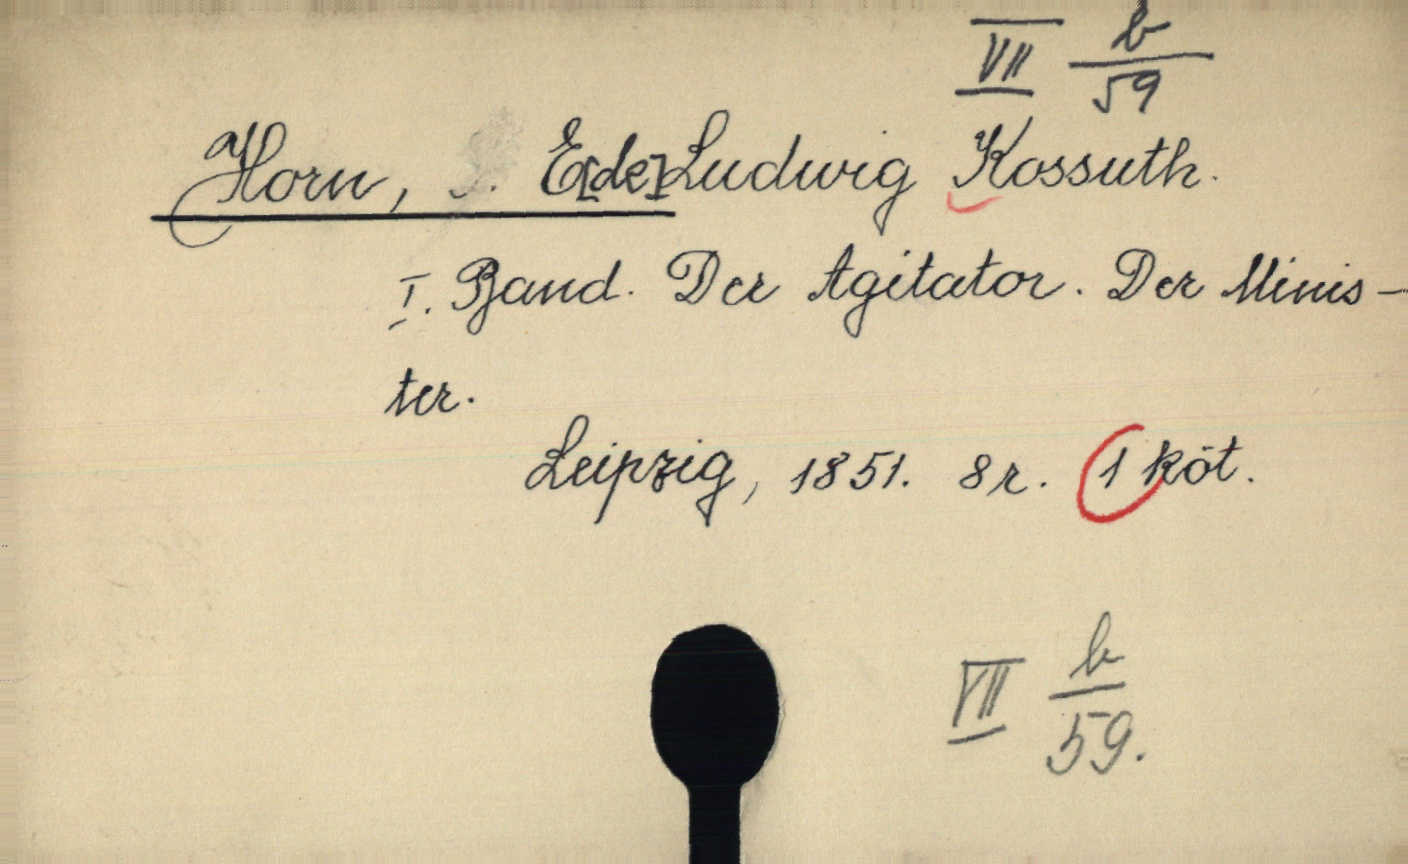 VII b/59
Horn, E[de] Ludwig Kossuth.
I. Band. Der Agitator. Der Minis-
ter.
Leipzig, 1851. 8r. 1 köt.
VII b/59.